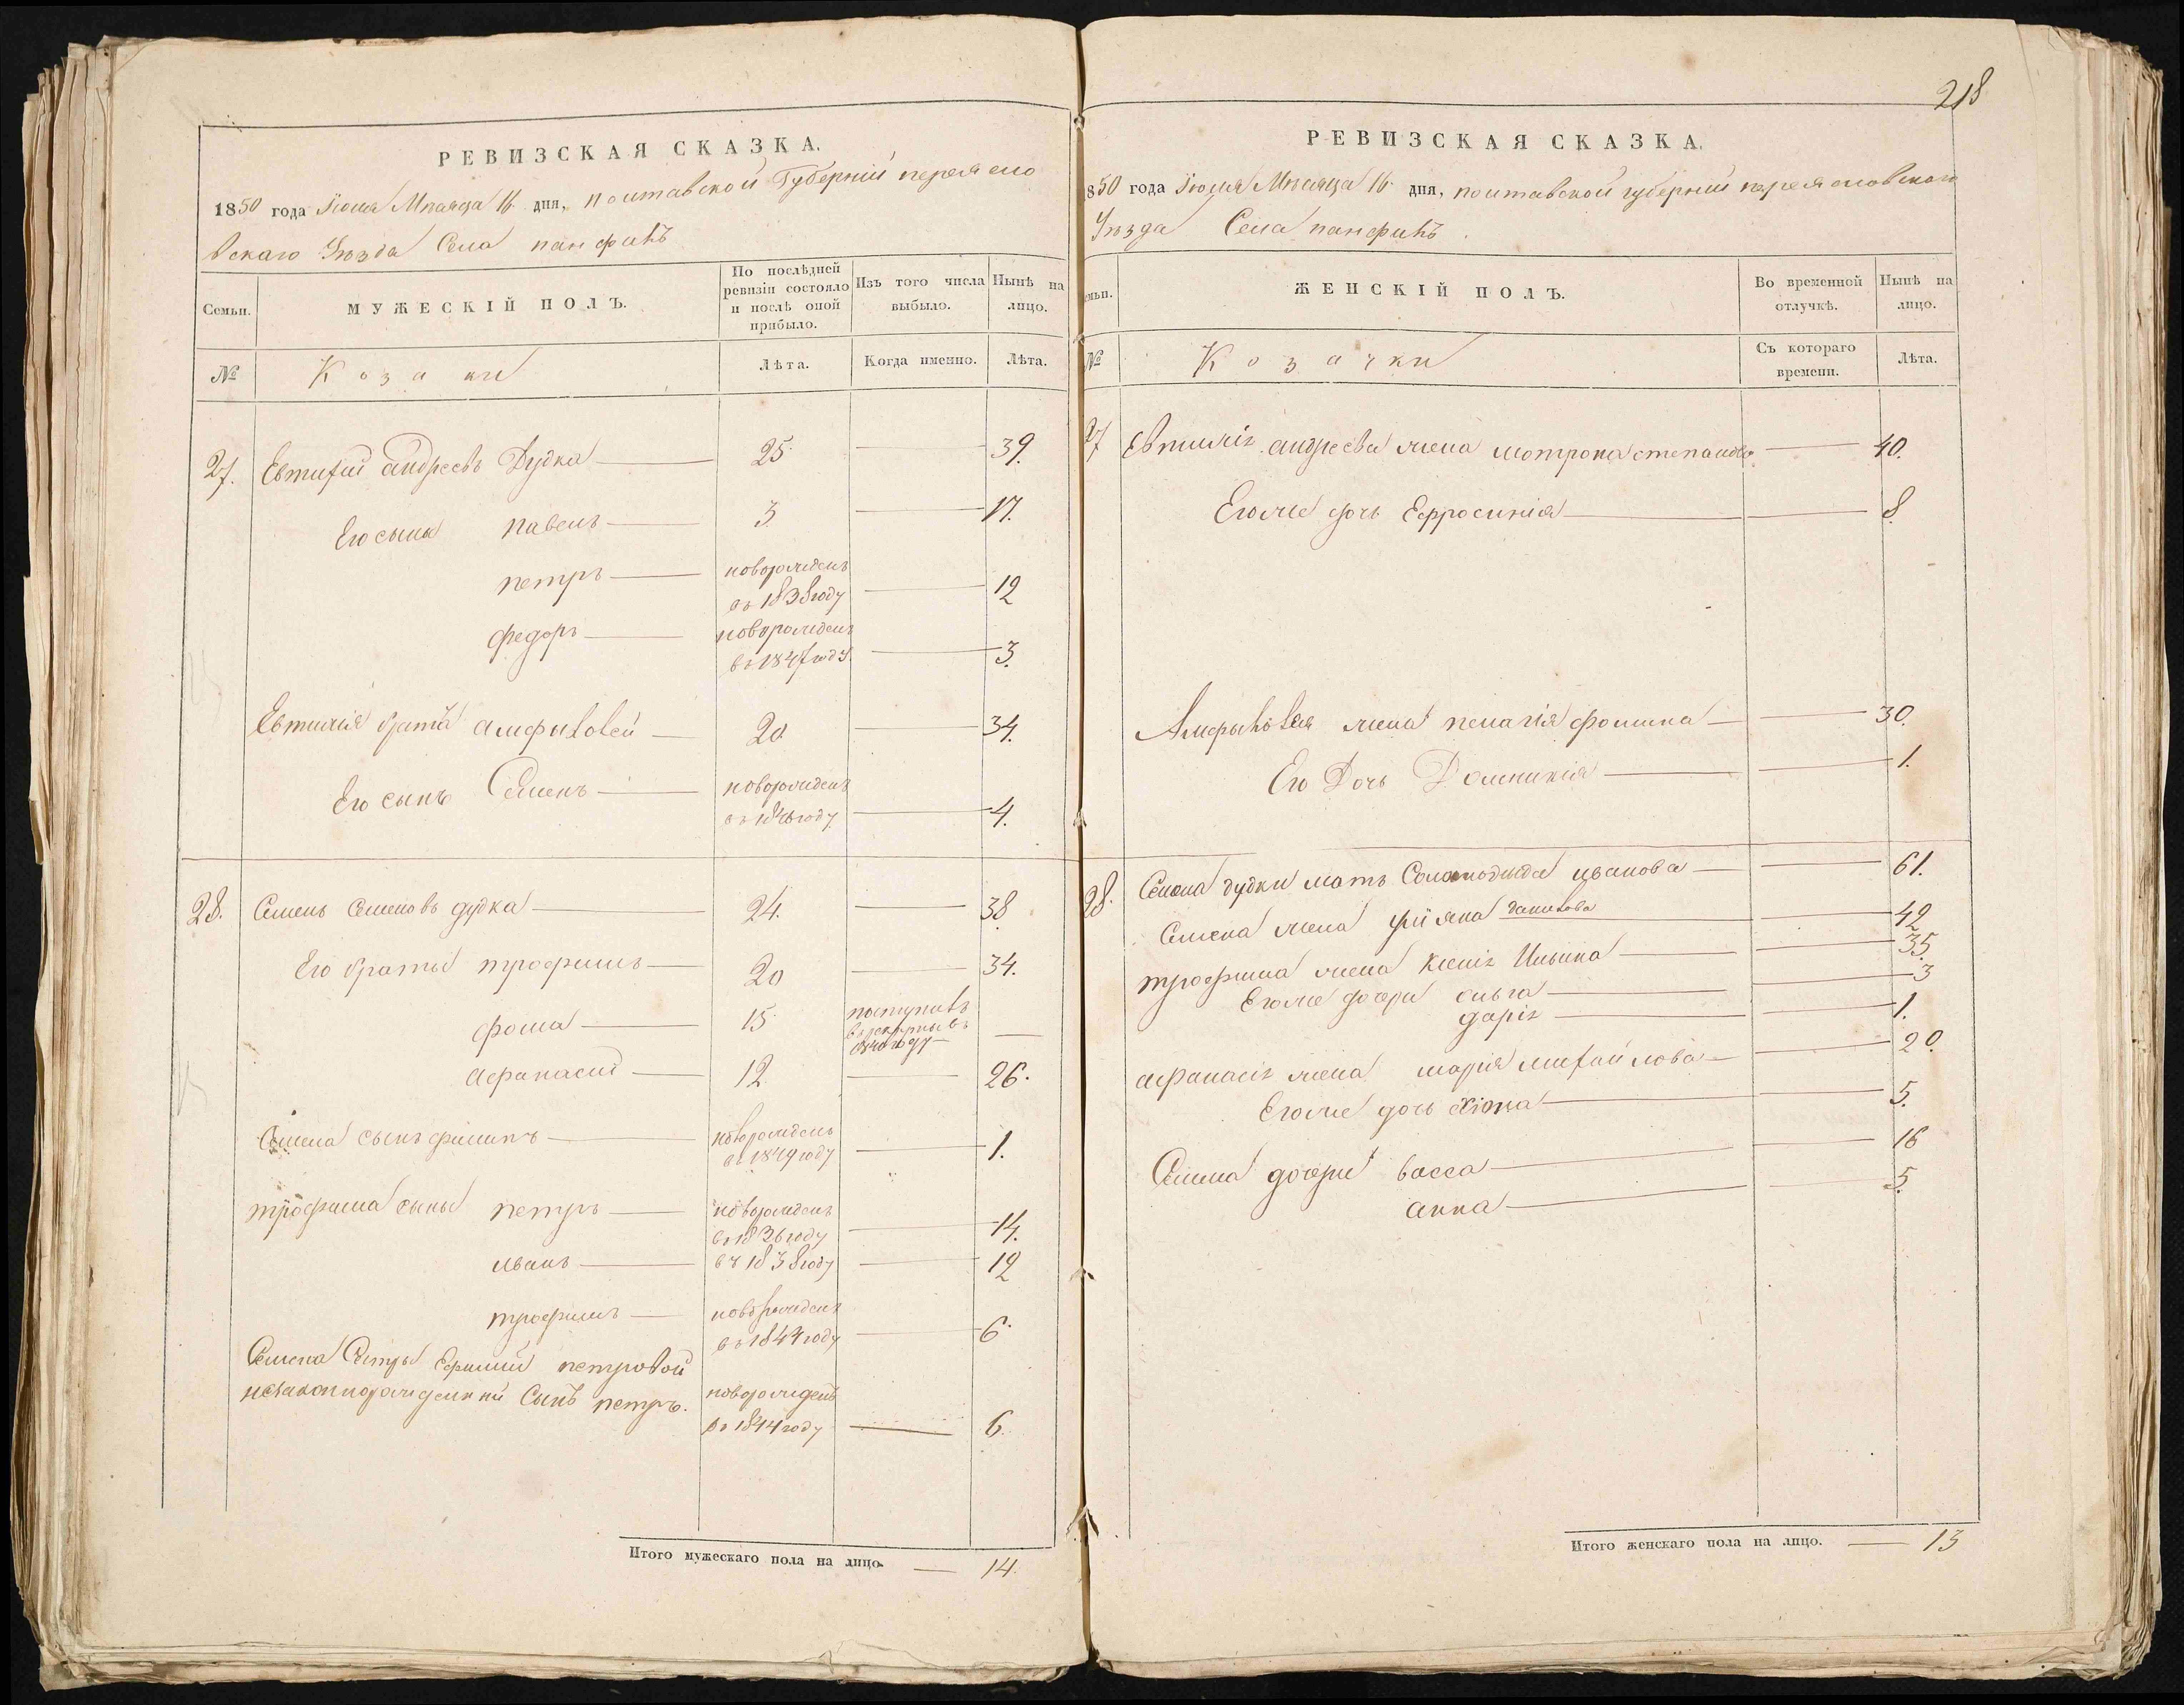 РЕВИЗСКАЯ СКАЗКА.
1850 года Іюля Мѣсяца 16 дня, полтавской Губерніи переясло
вскаго Уѣзда Села панфилъ
Семьи.
МУЖЕСКІЙ ПОЛЪ.
По послѣдней ревизіи состояло и послѣ оной прибыло.
Изъ того числа выбыло.
Нынѣ на лицо.
№
Козаки
Лѣта.
Когда именно.
Лѣта.
27. Евтифій андреевъ Дудка 25 39.
Его сыны павелъ 3 17.
петръ новорожденъ
въ 1838 году 12
федоръ новорожденъ
въ 1847 году 3.
Евтифія братъ амфиловей 20 34.
Его сынъ Семенъ новорожденъ
въ 1846 году 4.
28. Семенъ Семеновъ дудка 24. 38.
Его братья трофимъ 20 34.
фома 15 поступилъ
въ рекруты въ
1840 году
афанасий 12 26.
Семена сынъ филипъ новорожденъ
въ 1849 году 1.
трофима сыны петръ новорожденъ
въ 1836 году 14.
иванъ въ 1838 году 12
трофимъ новорожденъ
въ 1844 году 6.
Семена Сестры Ефимии петровой
незаконнорожденный Сынъ петръ. новорожденъ
въ 1844 году 6.
Итого мужескаго пола на лицо 14.
218
РЕВИЗСКАЯ СКАЗКА.
850 года Іюля Мѣсяца 16 дня, полтавской губерніи переясловскаго
Уѣзда Села панфилъ.
емьи.
ЖЕНСКІЙ ПОЛЪ.
Во временной отлучкѣ.
Нынѣ на лицо.
№
Козачки
Съ котораго времени.
Лѣта.
27 Евтифія андреева жена мотрона степанова 40.
Егоже дочь Ефросинія 8.
Амфиловея жена пелагія фомина 30.
Его Дочь Домникія 1.
28. Семена дудки мать Соломонида иванова 61.
Семена жена данилова 42
трофима жена Ксенія Ильина 35.
Егоже дочери ольга 3
дарія 1.
афанасія жена марія михайлова 20.
Егоже дочь 5.
Семена дочери васса 16
анна 5.
Итого женскаго пола на лицо. 13